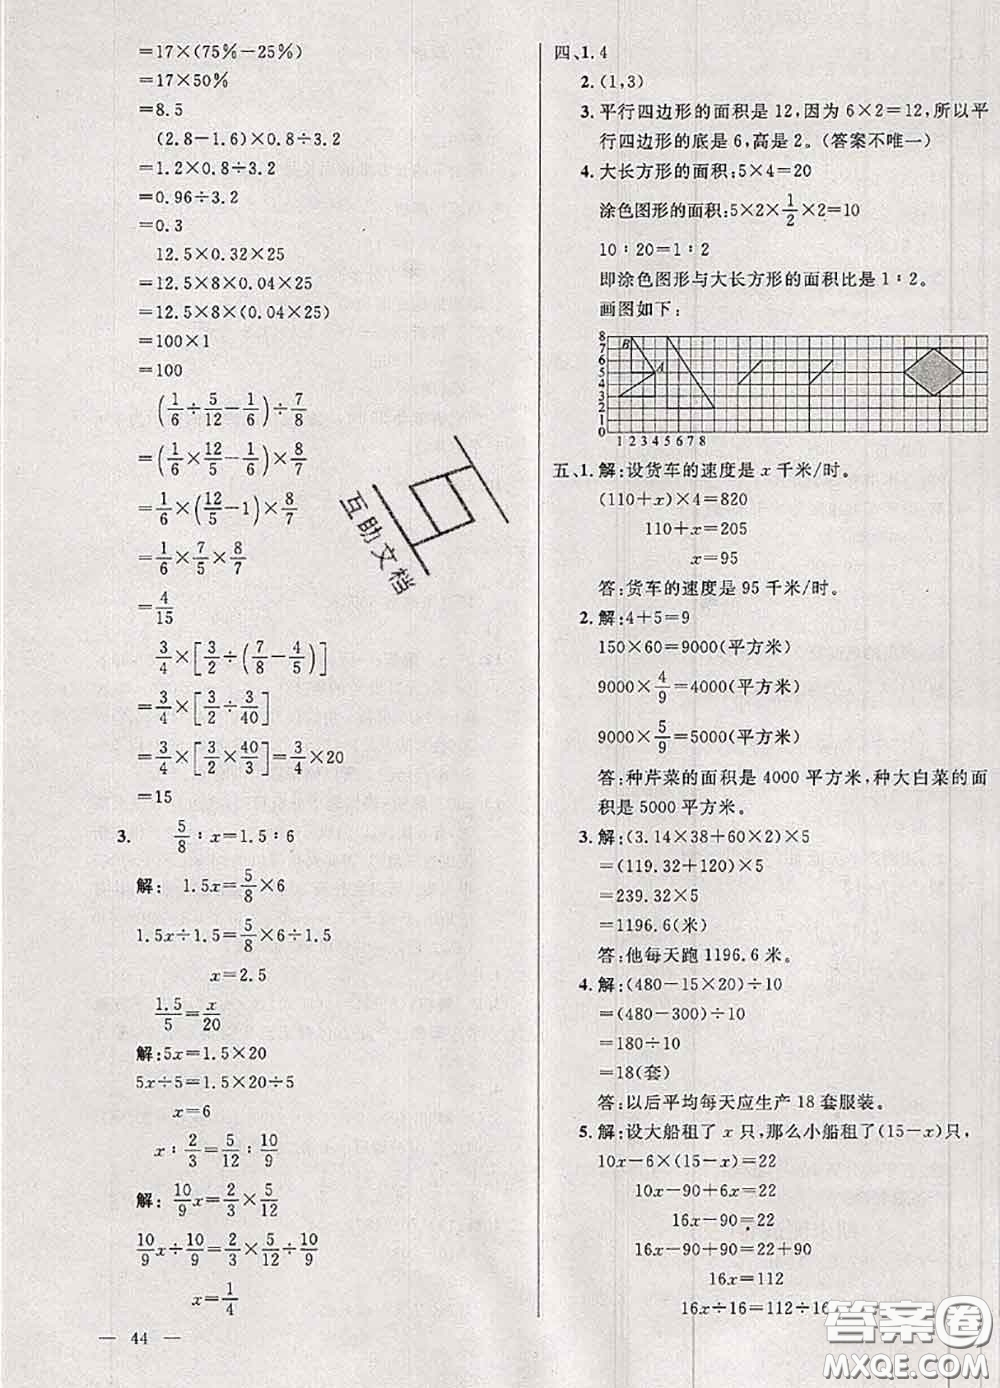 =17×(75%-25%)
=17×50%
=8.5
(2.8-1.6)×0.8÷3.2
=1.2×0.8÷3.2
=0.96÷3.2
=0.3
12.5×0.32×25
=12.5×8×0.04×25
=12.5×8×(0.04×25)
=100×1
=100
(1/6÷5/12-1/6)÷7/8
=(1/6×12/5-1/6)×8/7
=1/6×(12/5-1)×8/7
=1/6×7/5×8/7
=4/15
3/4×[3/2÷(7/8-4/5)]
=3/4×[3/2÷3/40]
=3/4×[3/2×40/3]=3/4×20
=15
3. 5/8∶x=1.5∶6
解: 1.5x=5/8×6
1.5x÷1.5=5/8×6÷1.5
x=2.5
1.5/5=x/20
解:5x=1.5×20
5x÷5=1.5×20÷5
x=6
x∶2/3=5/12∶10/9
解: 10/9x=2/3×5/12
10/9x÷10/9=2/3×5/12÷10/9
x=1/4
— 44 —
四、1.4
2.(1,3)
3.平行四边形的面积是12,因为6×2=12,所以平
行四边形的底是6,高是2。(答案不唯一)
4.大长方形的面积:5×4=20
涂色图形的面积:5×2×1/2×2=10
10∶20=1∶2
即涂色图形与大长方形的面积比是1∶2。
画图如下:
8
7
6
5
4
3
2
1
0
B
A
1 2 3 4 5 6 7 8
五、1.解:设货车的速度是x千米/时。
(110+x)×4=820
110+x=205
x=95
答:货车的速度是95千米/时。
2.解:4+5=9
150×60=9000(平方米)
9000×4/9=4000(平方米)
9000×5/9=5000(平方米)
答:种芹菜的面积是4000平方米,种大白菜的面
积是5000平方米。
3.解:(3.14×38+60×2)×5
=(119.32+120)×5
=239.32×5
=1196.6(米)
答:他每天跑1196.6米。
4.解:(480-15×20)÷10
=(480-300)÷10
=180÷10
=18(套)
答:以后平均每天应生产18套服装。
5.解:设大船租了x只,那么小船租了(15-x)只,
10x-6×(15-x)=22
10x-90+6x=22
16x-90=22
16x-90+90=22+90
16x=112
16x÷16=112÷16
互助文档
答案圈
MXQE.COM